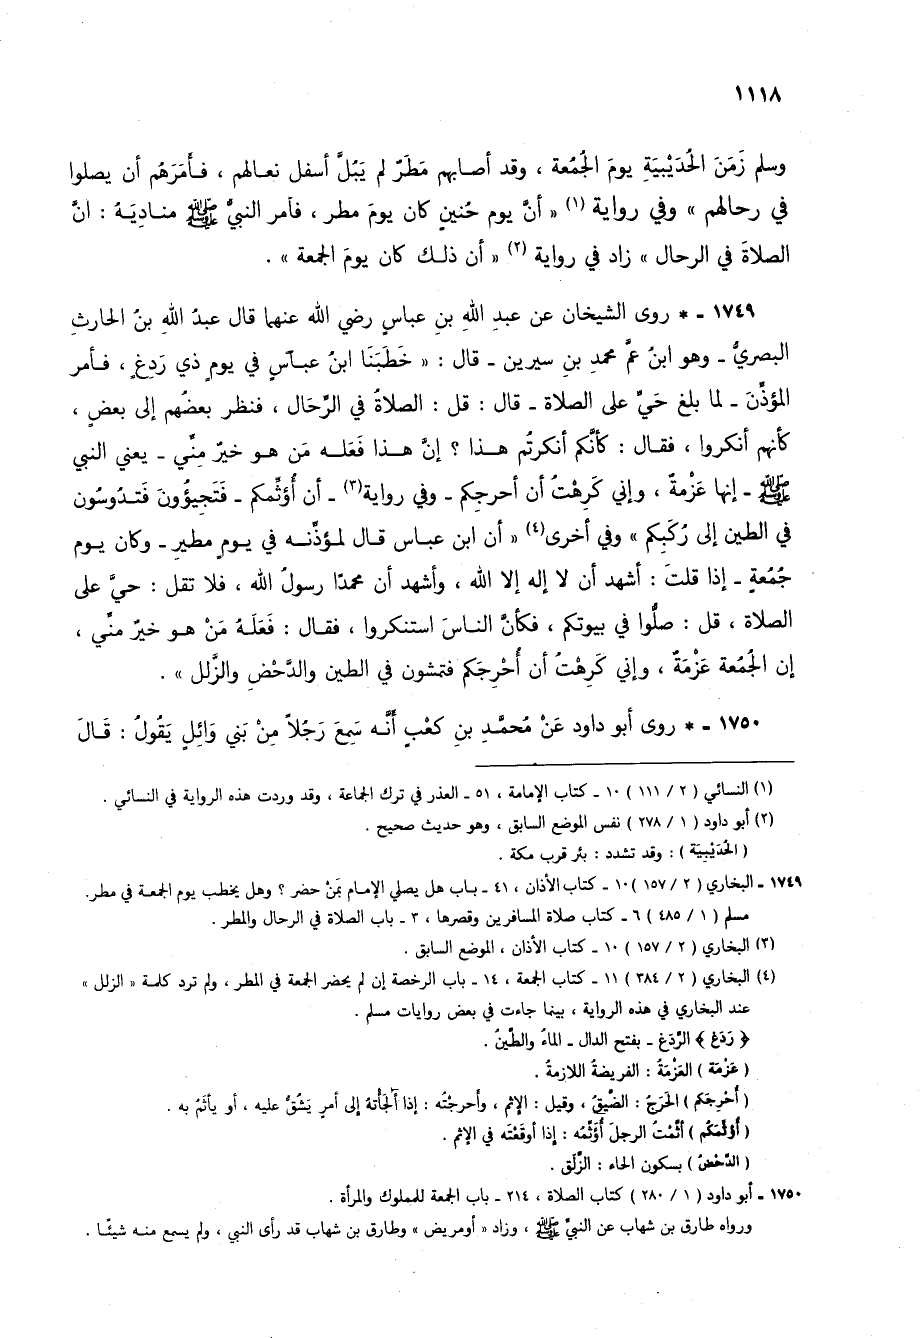 ١١١٨
وسلم زَمَنَ الحُدَيْبِيَةِ يومَ الجُمُعة ، وقد أصابهم مَطَرٌ لم يَبُلَّ أسفل نعالهم ، فأَمَرَهُم أن يصلوا
في رحالهم » وفي رواية (١) « أنَّ يوم حُنينٍ كان يومَ مطر ، فأمر النبيُّ ﷺ مناديَهُ : انَّ
الصلاةَ في الرحال » زاد في رواية (٢) « أن ذلك كان يومَ الجمعة » .
١٧٤٩ - * روى الشيخان عن عبدِ اللهِ بنِ عباسٍ رضي الله عنهما قال عبدُ اللهِ بنُ الحارثِ
البصريُّ - وهو ابنُ عمِّ محمدِ بنِ سيرين - قال : « خَطَبَنَا ابنُ عباسٍ في يومٍ ذي رَدغٍ ، فأمر
المؤذِّنَ - لما بلغ حَيَّ على الصلاة - قال : قل : الصلاةُ في الرِّحَال ، فنظر بعضُهم إلى بعضٍ ،
كأنهم أنكروا ، فقال : كأنَّكم أنكرتُم هذا ؟ إنَّ هذا فَعَلَه مَن هو خيرٌ مِنِّي - يعني النبي
ﷺ - إنها عَزْمةٌ ، وإني كَرِهْتُ أن أحرجكم - وفي رواية(٣) - أن أُؤَثِّمكم - فَتَجيؤُونَ فَتدُوسُون
في الطين إلى رُكَبِكم » وفي أخرى(٤) « أن ابن عباس قال لمؤذِّنه في يومٍ مطيرٍ - وكان يوم
جُمُعةٍ - إذا قلتَ : أشهد أن لا إله إلا الله ، وأشهد أن محمدًا رسولُ الله ، فلا تقل : حيَّ على
الصلاة ، قل : صلُّوا في بيوتكم ، فكأنَّ الناسَ استنكروا ، فقال : فَعَلَهُ مَنْ هو خيرٌ منِّي ،
إن الجُمُعة عَزْمَةٌ ، وإني كَرِهْتُ أن أُحْرِجَكم فتمشون في الطين والدَّحْضِ والزَّلل » .
١٧٥٠ - * روى أبو داود عَنْ مُحمَّدِ بنِ كعْبٍ أَنَّه سِمِعَ رَجُلاً مِنْ بَنِي وَائِلٍ يَقُولُ : قَالَ
(١) النسائي ( ٢ / ١١١ ) ١٠ - كتاب الإمامة ، ٥١ - العذر في ترك الجماعة ، وقد وردت هذه الرواية في النسائي .
(٢) أبو داود ( ١ / ٢٧٨ ) نفس الموضع السابق ، وهو حديث صحيح .
( الحُدَيْبِيَة ) : وقد تشدد : بئر قرب مكة .
١٧٤٩ - البخاري ( ٢ / ١٥٧ ) ١٠ - كتاب الأذان ، ٤١ - باب هل يصلي الإمام بمَنْ حضر ؟ وهل يخطب يوم الجمعة في مطر.
مسلم ( ١ / ٤٨٥ ) ٦ - كتاب صلاة المسافرين وقصرها ، ٣ - باب الصلاة في الرحال والمطر .
(٣) البخاري ( ٢ / ١٥٧ ) ١٠ - كتاب الأذان ، الموضع السابق .
(٤) البخاري ( ٢ / ٣٨٤ ) ١١ - كتاب الجمعة ، ١٤ - باب الرخصة إن لم يحضر الجمعة في المطر ، ولم ترد كلمة « الزلل »
عند البخاري في هذه الرواية ، بينما جاءت في بعض روايات مسلم .
﴿ رَدَغ ﴾ الرَّدَغ - بفتح الدال - الماءُ والطِّينُ .
( عَزْمَة ) العَزْمَةُ : الفريضةُ اللازمةُ .
( أُحْرِجَكم ) الحَرَجُ : الضِّيقُ ، وقيل : الإثم ، وأحرجتُه : إذا أَلْجَأْتهُ إلى أمرٍ يَشُقُّ عليه ، أو يأثَمُ به .
( أُوَثِّمَكُم ) أثَّمْتُ الرجلَ أُؤَثِّمُه : إذا أوقَعْتَه في الإثم .
( الدَّحْضُ ) بسكون الحاء : الزَّلَق .
١٧٥٠ - أبو داود ( ١ / ٢٨٠ ) كتاب الصلاة ، ٢١٤ - باب الجمعة للمملوك والمرأة .
ورواه طارق بن شهاب عن النبيِّ ﷺ ، وزاد « أومريض » وطارق بن شهاب قد رأى النبي ، ولم يسمع منه شيئًا .